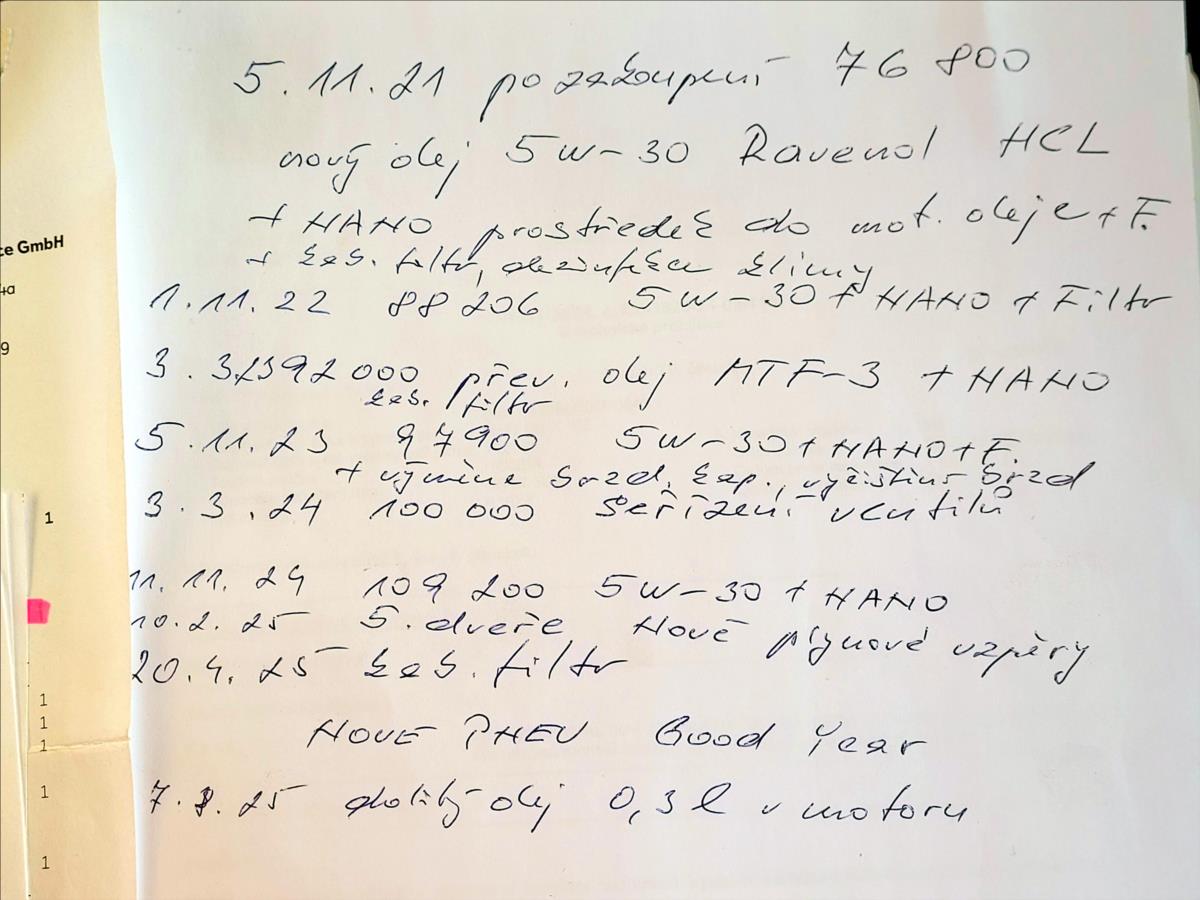 5.11.21 po zakoupení 76 800
nový olej 5W-30 Ravenol HCL
+ NANO prostředek do mot. oleje + F.
+ kab. filtr, dezinfekce klimy
1.11.22 88 206 5W-30 + NANO + Filtr
3. 3. 92 000 přev. olej MTF-3 + NANO
kab. filtr
5.11.23 97900 5W-30 + NANO + F.
+ výměna brzd. kap., vyčištění brzd
3.3.24 100 000 Seřízení ventilů
11.11.24 109 200 5W-30 + NANO
10.2.25 5. dveře Nové plynové vzpěry
20.4.25 kab. filtr
NOVÉ PNEU Good Year
7.8.25 dolitý olej 0,3 l v motoru
ce GmbH
4a
9
1
1
1
1
1
1